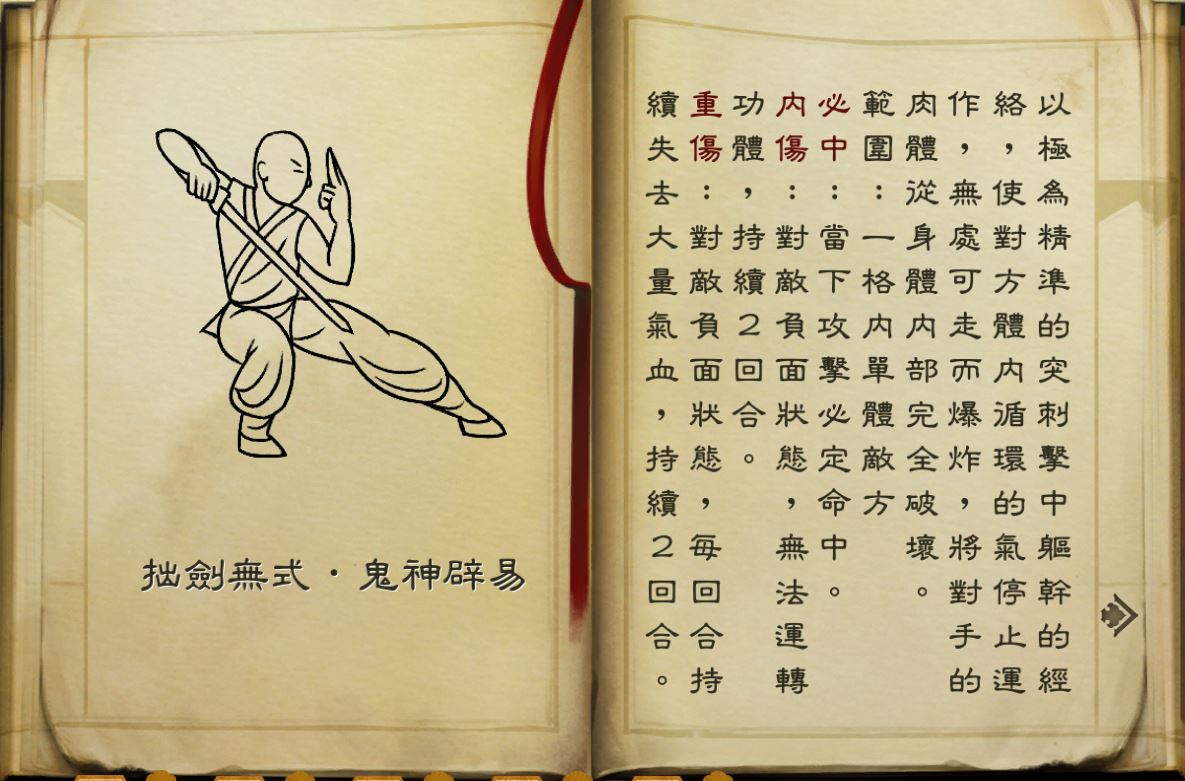 以極為精準的突刺擊中軀幹的經
絡，使對方體內循環的氣停止運
作，無處可走而爆炸，將對手的
肉體從身體內部完全破壞。
範圍：一格內單體敵方
必中：當下攻擊必定命中。
內傷：對敵負面狀態，無法運轉
功體，持續2回合。
重傷：對敵負面狀態，每回合持
續失去大量氣血，持續2回合。
拙劍無式·鬼神辟易